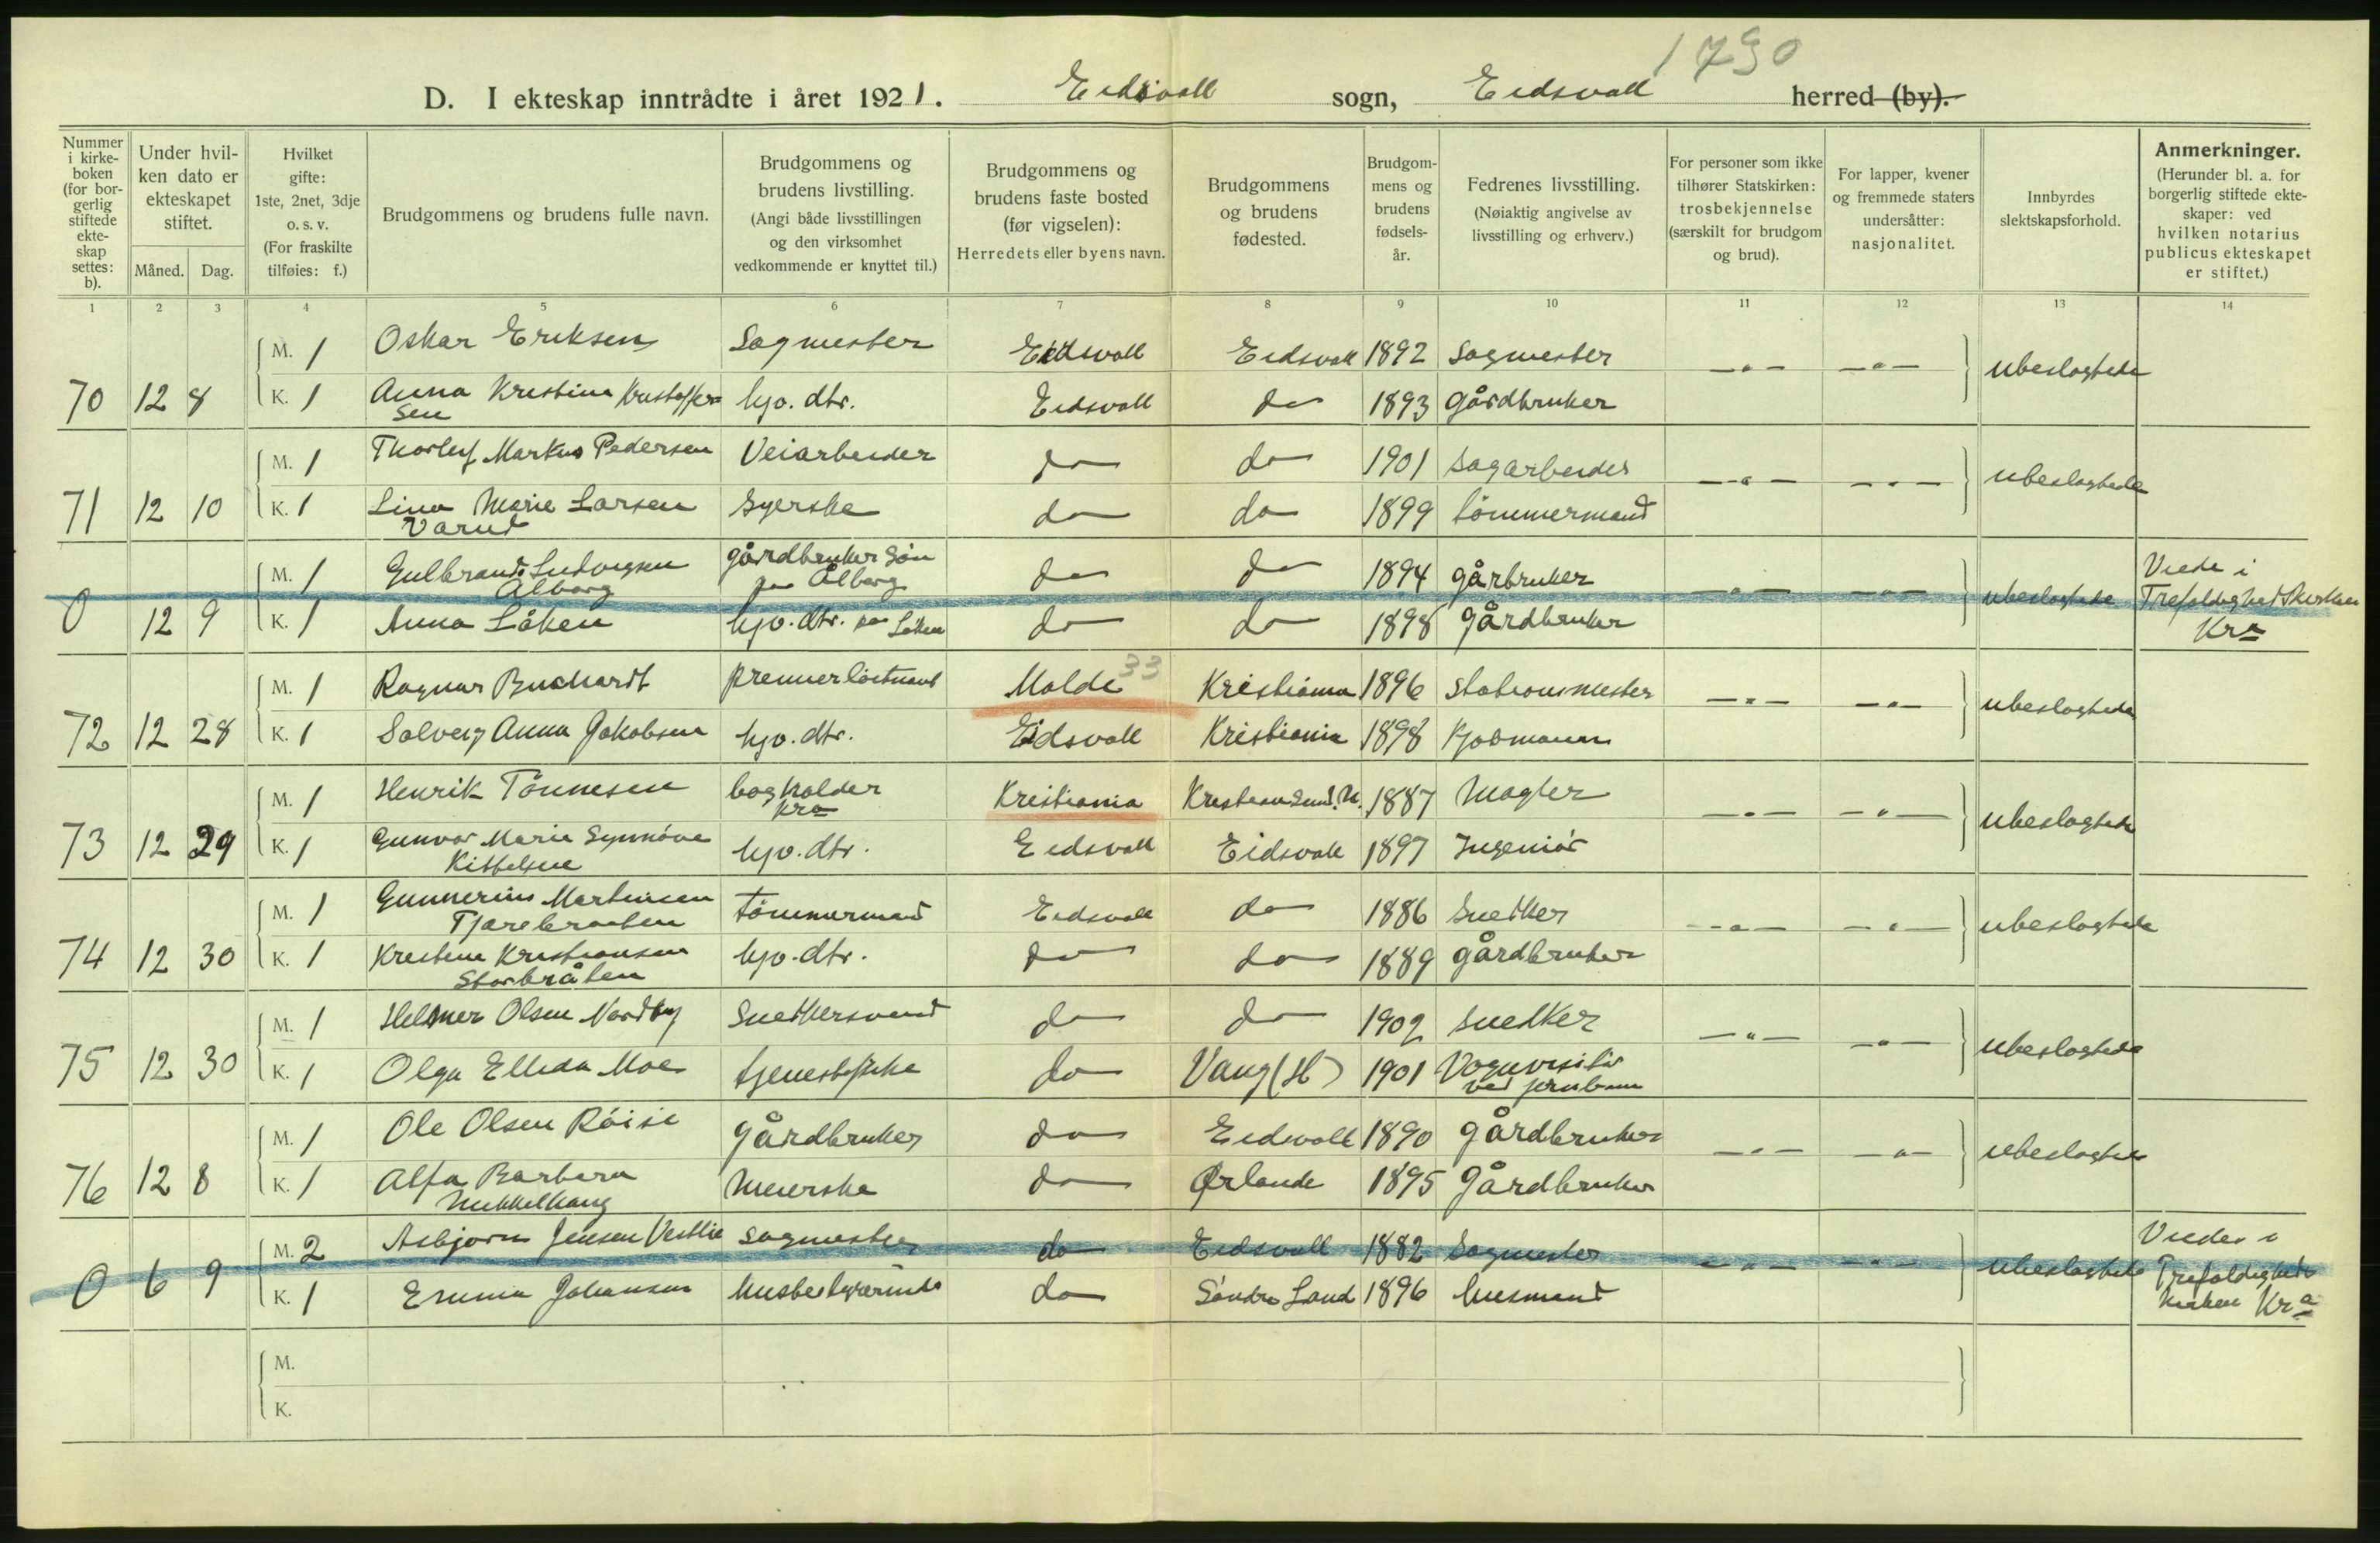 1790
D. I ekteskap inntrådte i året 1921. Eidsvoll sogn, Eidsvoll herred (by).
Nummer i kirkeboken (for borgerlig stiftede ekteskap settes: b).
Under hvilken dato er ekteskapet stiftet.
Måned. Dag.
Hvilket gifte: 1ste, 2net, 3dje o. s. v. (For fraskilte tilføies: f.)
Brudgommens og brudens fulle navn.
Brudgommens og brudens livstilling. (Angi både livsstillingen og den virksomhet vedkommende er knyttet til.)
Brudgommens og brudens faste bosted (før vigselen): Herredets eller byens navn.
Brudgommens og brudens fødested.
Brudgommens og brudens fødselsår.
Fedrenes livsstilling. (Nøiaktig angivelse av livsstilling og erhverv.)
For personer som ikke tilhører Statskirken: trosbekjennelse (særskilt for brudgom og brud).
For lapper, kvener og fremmede staters undersåtter: nasjonalitet.
Innbyrdes slektskapsforhold.
Anmerkninger. (Herunder bl. a. for borgerlig stiftede ekteskaper: ved hvilken notarius publicus ekteskapet er stiftet.)
1 2 3 4 5 6 7 8 9 10 11 12 13 14
M. 1 Oskar Eriksen Sagmester Eidsvoll Eidsvoll 1892 Sagmester — " — — " — ubeslagtede
70 12 8 K. 1 Anna Kristine Kristoffersen hjv. dtr. Eidsvoll do 1893 gårdbruker
M. 1 Thorleif Markus Pedersen Veiarbeider do do 1901 sagarbeider — " — — " — ubeslagtede
71 12 10 K. 1 Lina Marie Larsen Varud Syerske do do 1899 tömmermand
M. 1 Gulbrand Ludvigsen Ålborg gårdbruker sön på Ålborg do do 1894 gårbruker — " — — " — ubeslagtede Viede i Trefoldighedskirken Kra
0 12 9 K. 1 Anna Låken hjv. dtr. på Låken do do 1898 gårdbruker
M. 1 Ragnar Buchardt premierlöitnant Molde 33 Kristiania 1896 Stationsmester — " — — " — ubeslagtede
72 12 28 K. 1 Solveig Anna Jakobsen hjv. dtr. Eidsvoll Kristiania 1898
M. 1 Henrik Tönnesen bogholder Kra Kristiania Kristiansund N. 1887 Mægler — " — — " — ubeslagtede
73 12 29 K. 1 Gunvor Marie Synnöve Kittelsen hjv. dtr. Eidsvoll Eidsvoll 1897 Ingeniör
M. 1 Gunnerius Martinsen Tjærebraaten tömmermand Eidsvoll do 1886 Snedker — " — — " — ubeslagtede
74 12 30 K. 1 Kristine Kristiansen Storbråten hjv. dtr. do do 1889 gårdbruker
M. 1 Helmer Olsen Nordby Snedkersvend do do 1902 snedker — " — — " — ubeslagtede
75 12 30 K. 1 Olga Ellida Moe tjenestepike do Vang (H) 1901 Vognvisitör ved jernbanen
M. 1 Ole Olsen Röise gårdbruker do Eidsvoll 1890 gårdbruker — " — — " — ubeslagtede
76 12 8 K. 1 Alfa Barbera Mikkelhaug Meierske do Ørlande 1895 gårdbruker
M. 2 Asbjørn Jensen Vestlie sagmester do Eidsvoll 1882 Sagmester — " — — " — ubeslagtede Viede i Trefoldigheds kirken Kra
0 6 9 K. 1 Emma Johansen husbestyrerinde do Söndre Land 1896 husmand
M.
K.